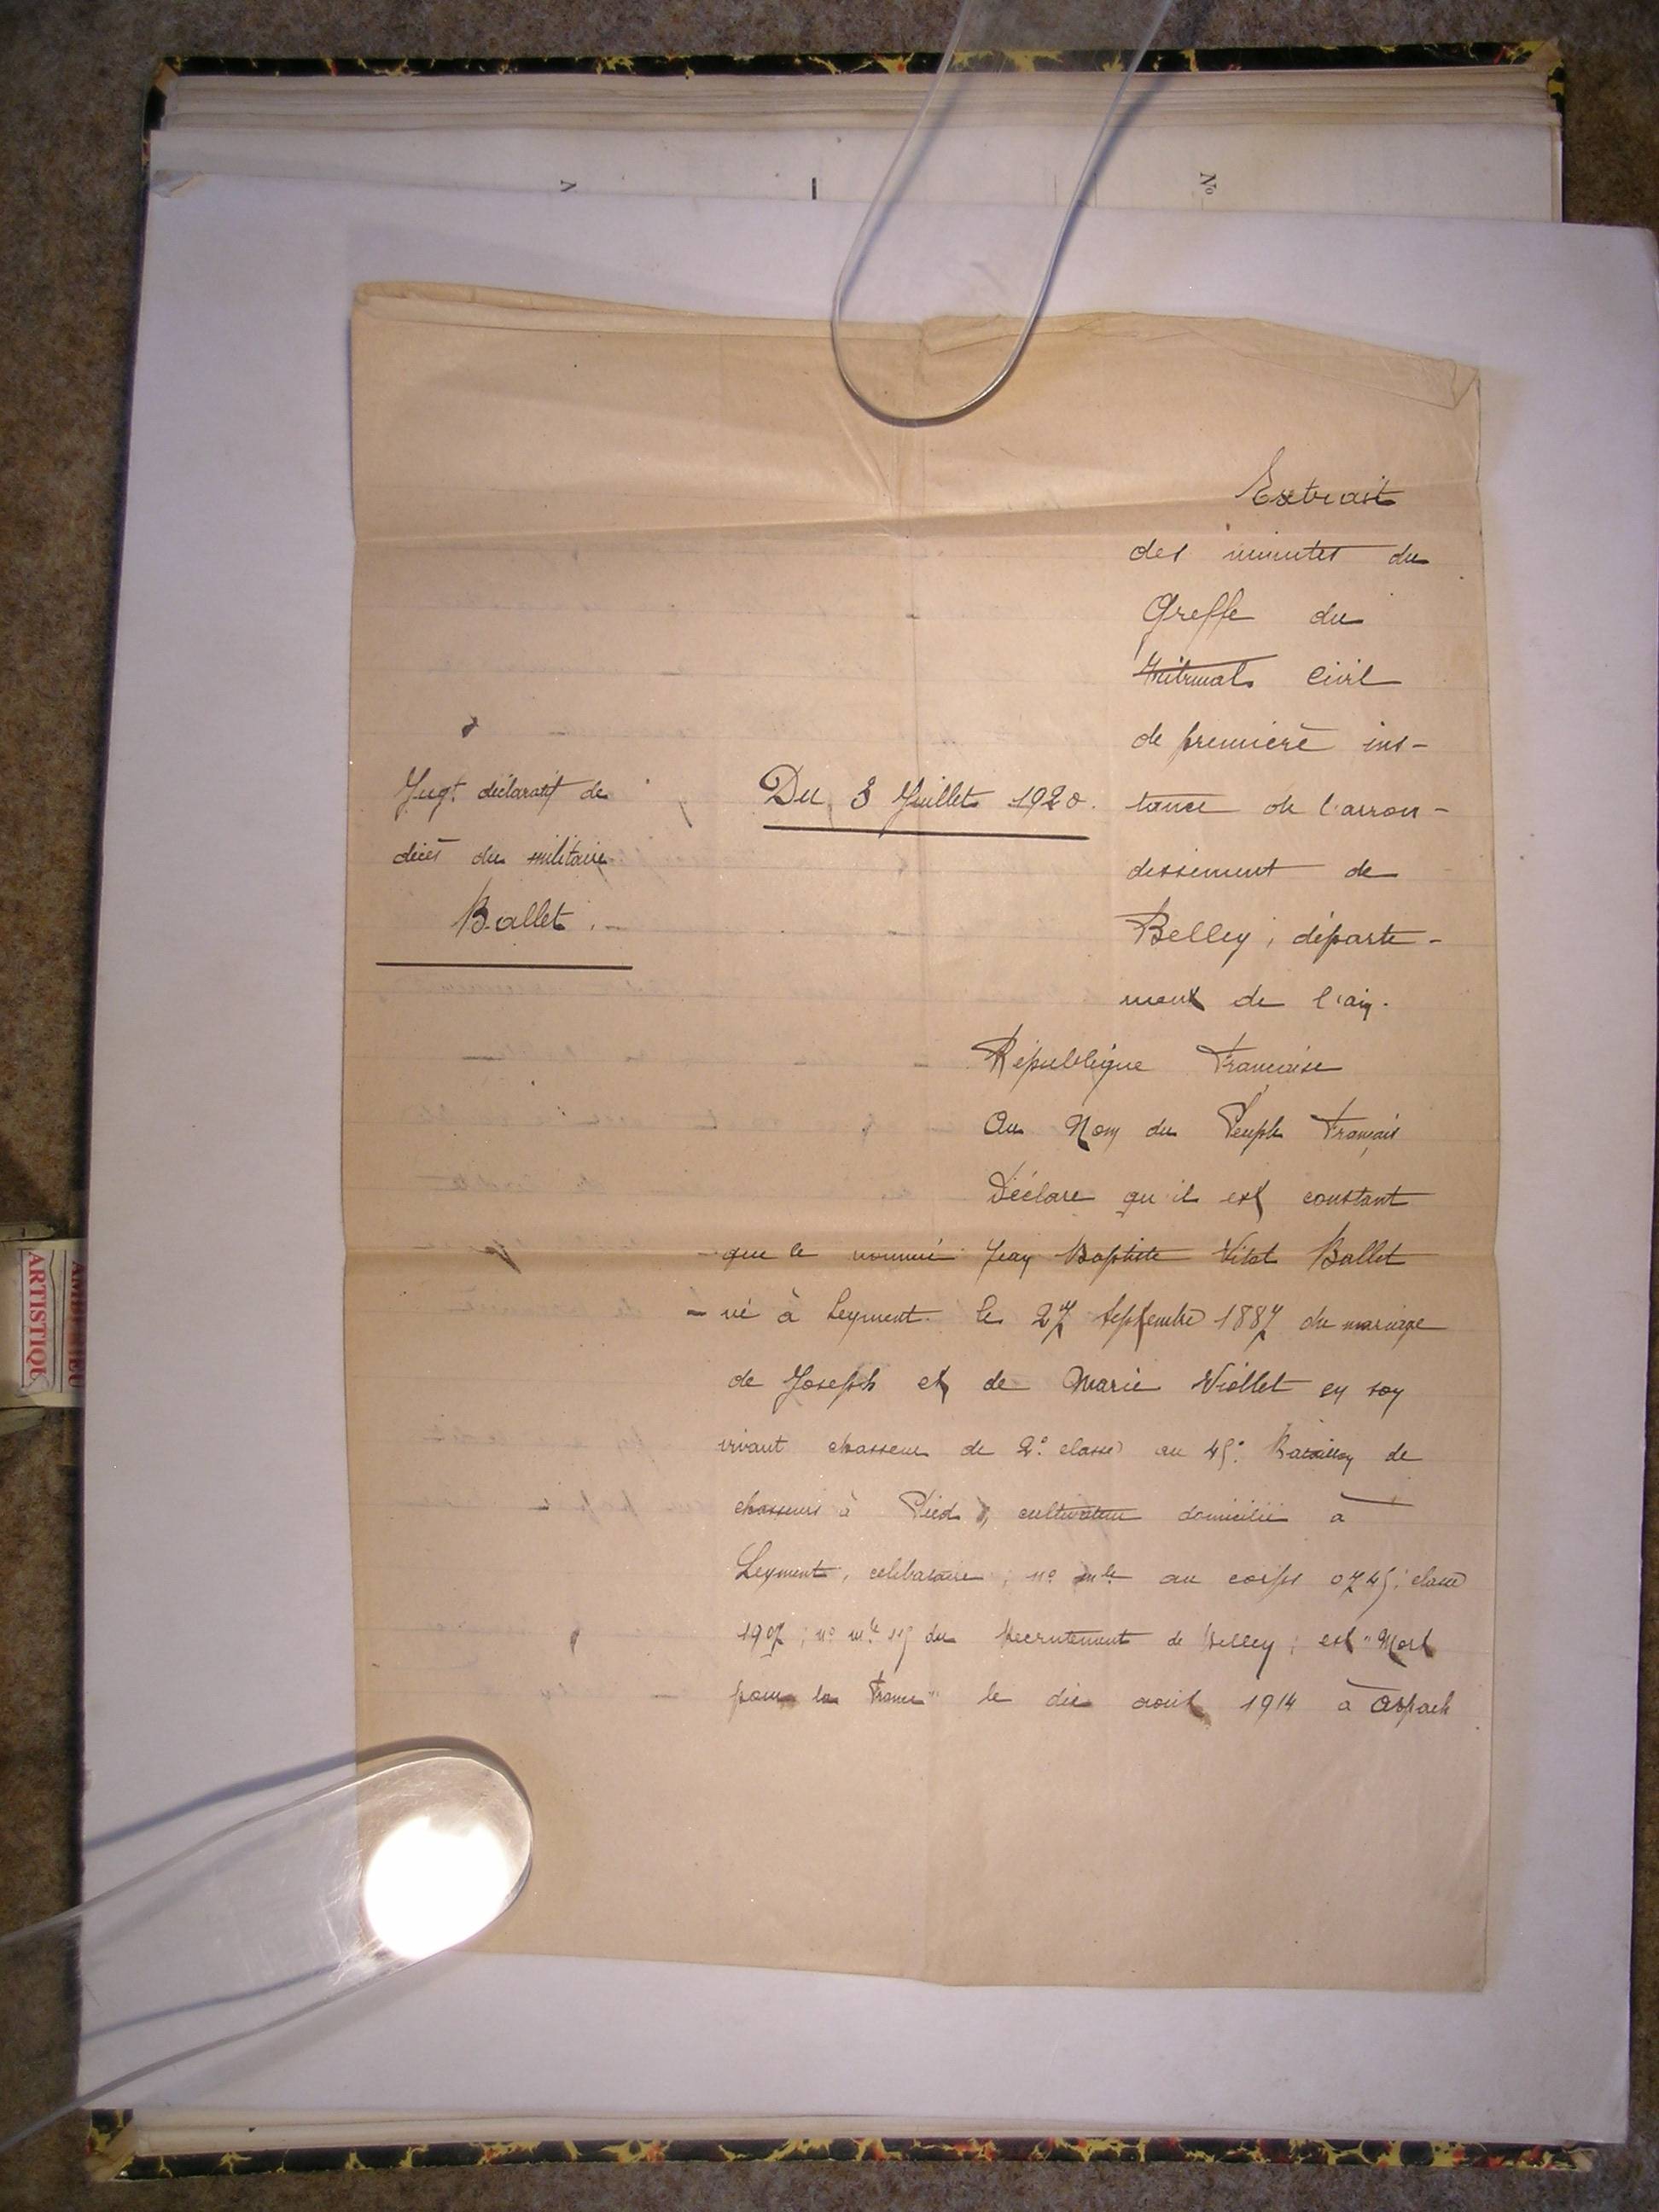 Nº
Extrait
des minutes du
Greffe du
Tribunal Civil
de première ins-
tance de l'arron-
dissement de
Belley, départe-
ment de l'ain.
Jugt déclaratif de
décès du militaire
Ballet.
Du 3 Juillet 1920.
République Française
Au Nom du Peuple Français
Déclare qu'il est constant
que le nommé Jean Baptiste Vital Ballet
né à Leyment le 27 Septembre 1887 du mariage
de Joseph et de Marie Viollet en son
vivant chasseur de 2e classe au 45e Bataillon de
chasseurs à Pied, cultivateur domicilié à
Leyment, célibataire, nº mle au corps 0745; classe
1907, nº mle 115 du Recrutement de Belley; est "Mort
pour la France" le dix août 1914 à Aspach
ARTISTIQU